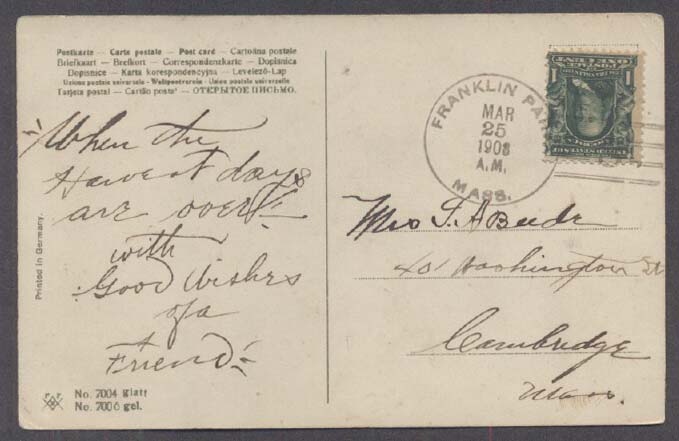 Postkarte — Carte postale — Post card — Cartolina postale
Briefkaart — Brefkort — Correspondenzkarte — Dopisnica
Dopisnice — Karta korespondencyjna — Levelező-Lap
Unione postale universale - Weltpostverein - Union postale universelle
Tarjeta postal — Cartão postal — ОТКРЫТОЕ ПИСЬМО.
"When the
Harvest days
are over"
with
Good Wishes
of a
Friend
Printed in Germany.
No. 7004 glatt
No. 7006 gel.
FRANKLIN PARK
MAR
25
1908
A.M.
MASS.
1
1
Mrs S. A.
40 Washington St
Cambridge
Mass.